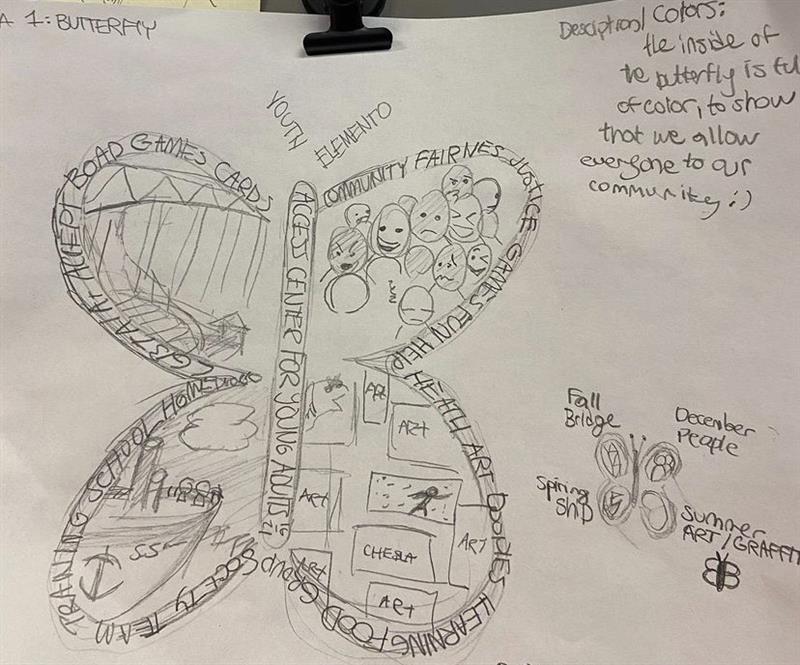 A 1: BUTTERFLY
Description/Colors:
the inside of
the butterfly is ful
of color, to show
that we allow
everyone to our
community :)
YOUTH
ELEMENTO
BOAD GAMES CARDS
ACCEPT
COMMUNITY FAIRNES JUSTICE GAMES FUN HELP
ACCESS CENTER FOR YOUNG ADULTS
HEALTH ART DOODLES LEARNING FOOD GROUPS
SOCIETY TEAM TRAINING SCHOOL
ART
ART
ART
ART
ART
ART
CHELSEA
S.S
Fall
Bridge
December
People
Spiring
Ship
Summer
ART/GRAFFITI